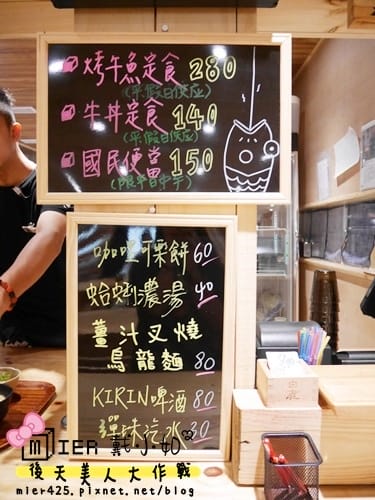 烤午魚定食 280
(平假日供应)
牛丼定食 140
(平假日供应)
國民便當 150
(限平日中午)
咖哩可樂餅 60
蛤蜊濃湯 40
薑汁叉燒
烏龍麵 80
KIRIN啤酒 80
彈珠汽水 30
MIER 戴小如
後天美人大作戰
mier425.pixnet.net/blog